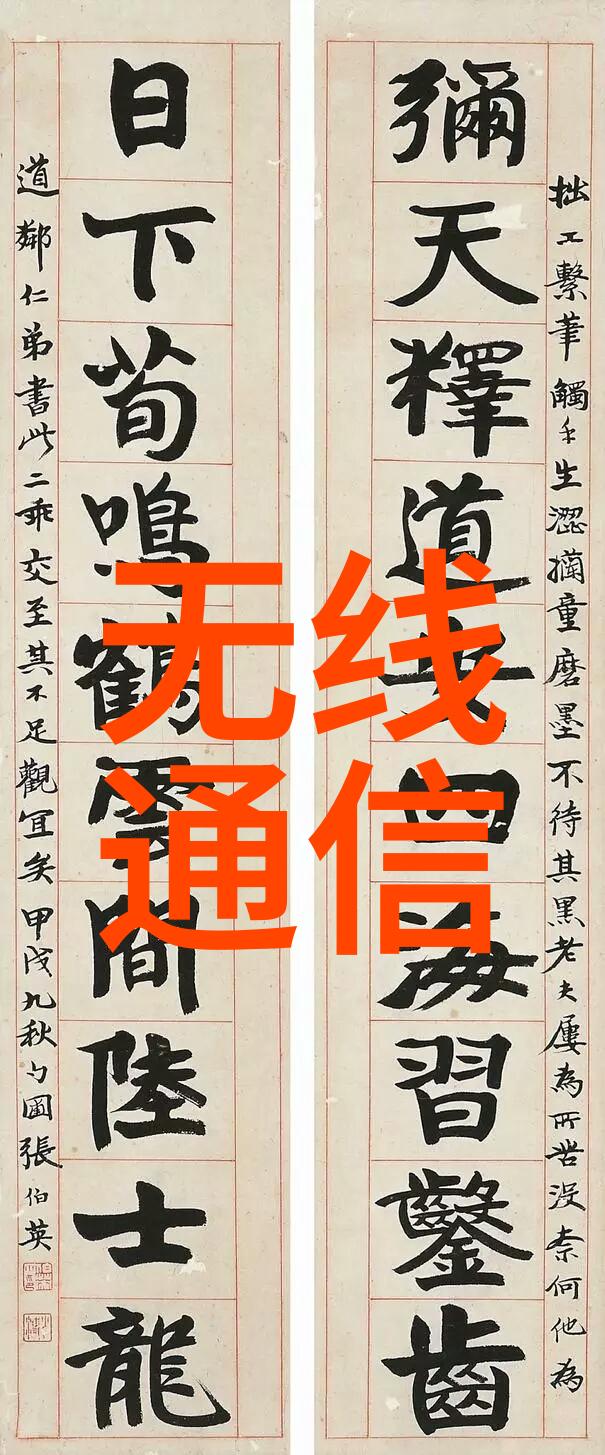 无线
通信
拙工繫筆觸手生澀童磨墨不待其黑老夫屢為所苦沒柰何他為
彌天釋道安四海習鑿齒
日下荀鳴鶴雲間陸士龍
道鄰仁弟書此二乖交至其不足觀宜矣甲戌九秋勺圃張伯英